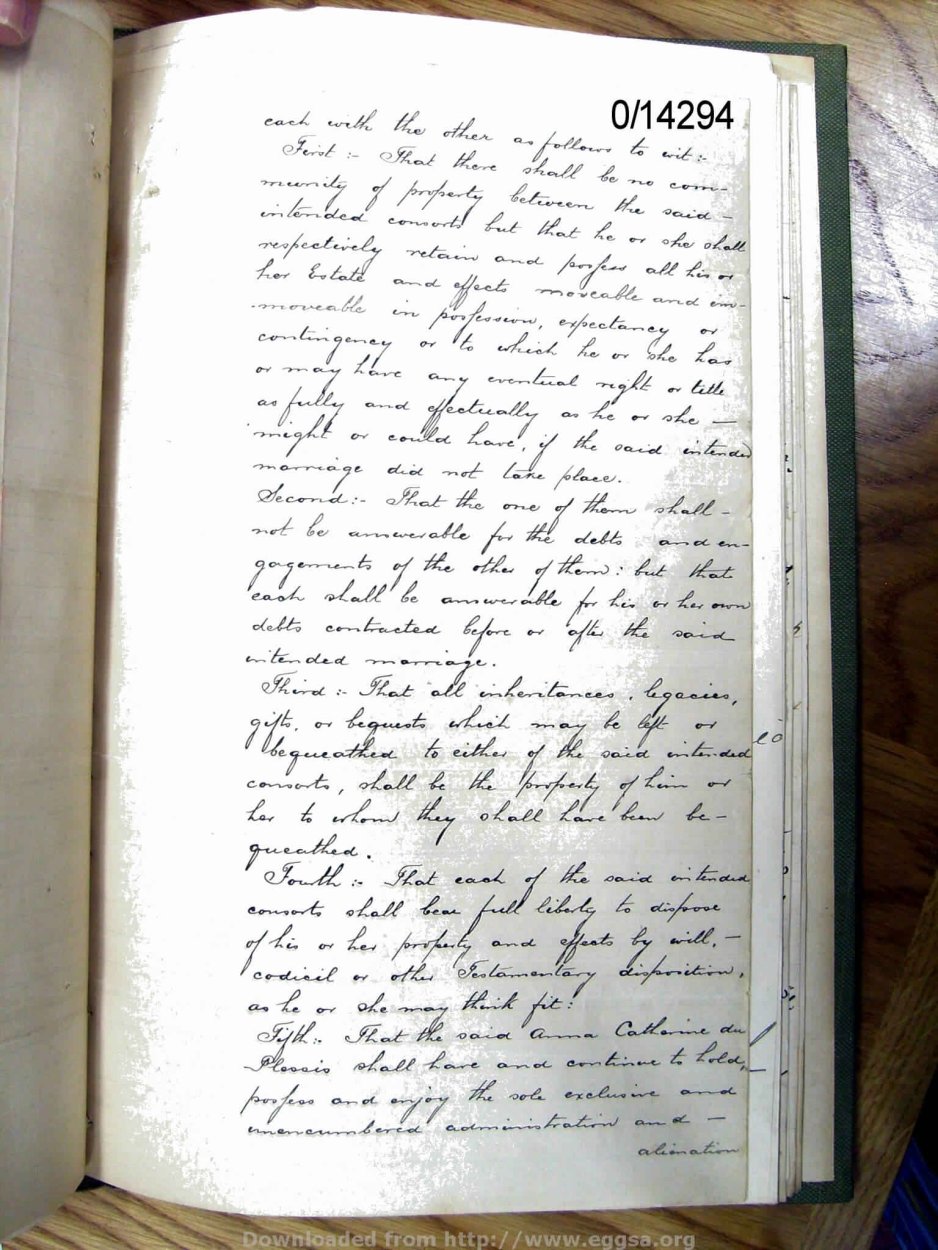 0/14294
each with the other as follows to wit :-
First :- That there shall be no com-
munity of property between the said -
intended consorts but that he or she shall
respectively retain and possess all his or
her Estate and effects moveable and im-
-moveable in possession, expectancy or
contingency or to which he or she has
or may have any eventual right or title
as fully and effectually as he or she -
might or could have, if the said intended
marriage did not take place.
Second :- That the one of them shall -
not be answerable for the debts and en-
gagements of the other of them : but that
each shall be answerable for his or her own
debts contracted before or after the said
intended marriage.
Third :- That all inheritances, legacies,
gifts, or bequests which may be left or
bequeathed to either of the said intended
consorts, shall be the property of him or
her to whom they shall have been be-
queathed.
Fourth :- That each of the said intended
consorts shall bear full liberty to dispose
of his or her property and effects by will, -
codicil or other Testamentary disposition,
as he or she may think fit :
Fifth :- That the said Anna Catherine du
Plessis shall have and continue to hold,
possess and enjoy the sole exclusive and
unencumbered administration and -
alienation
Downloaded from http://www.eggsa.org